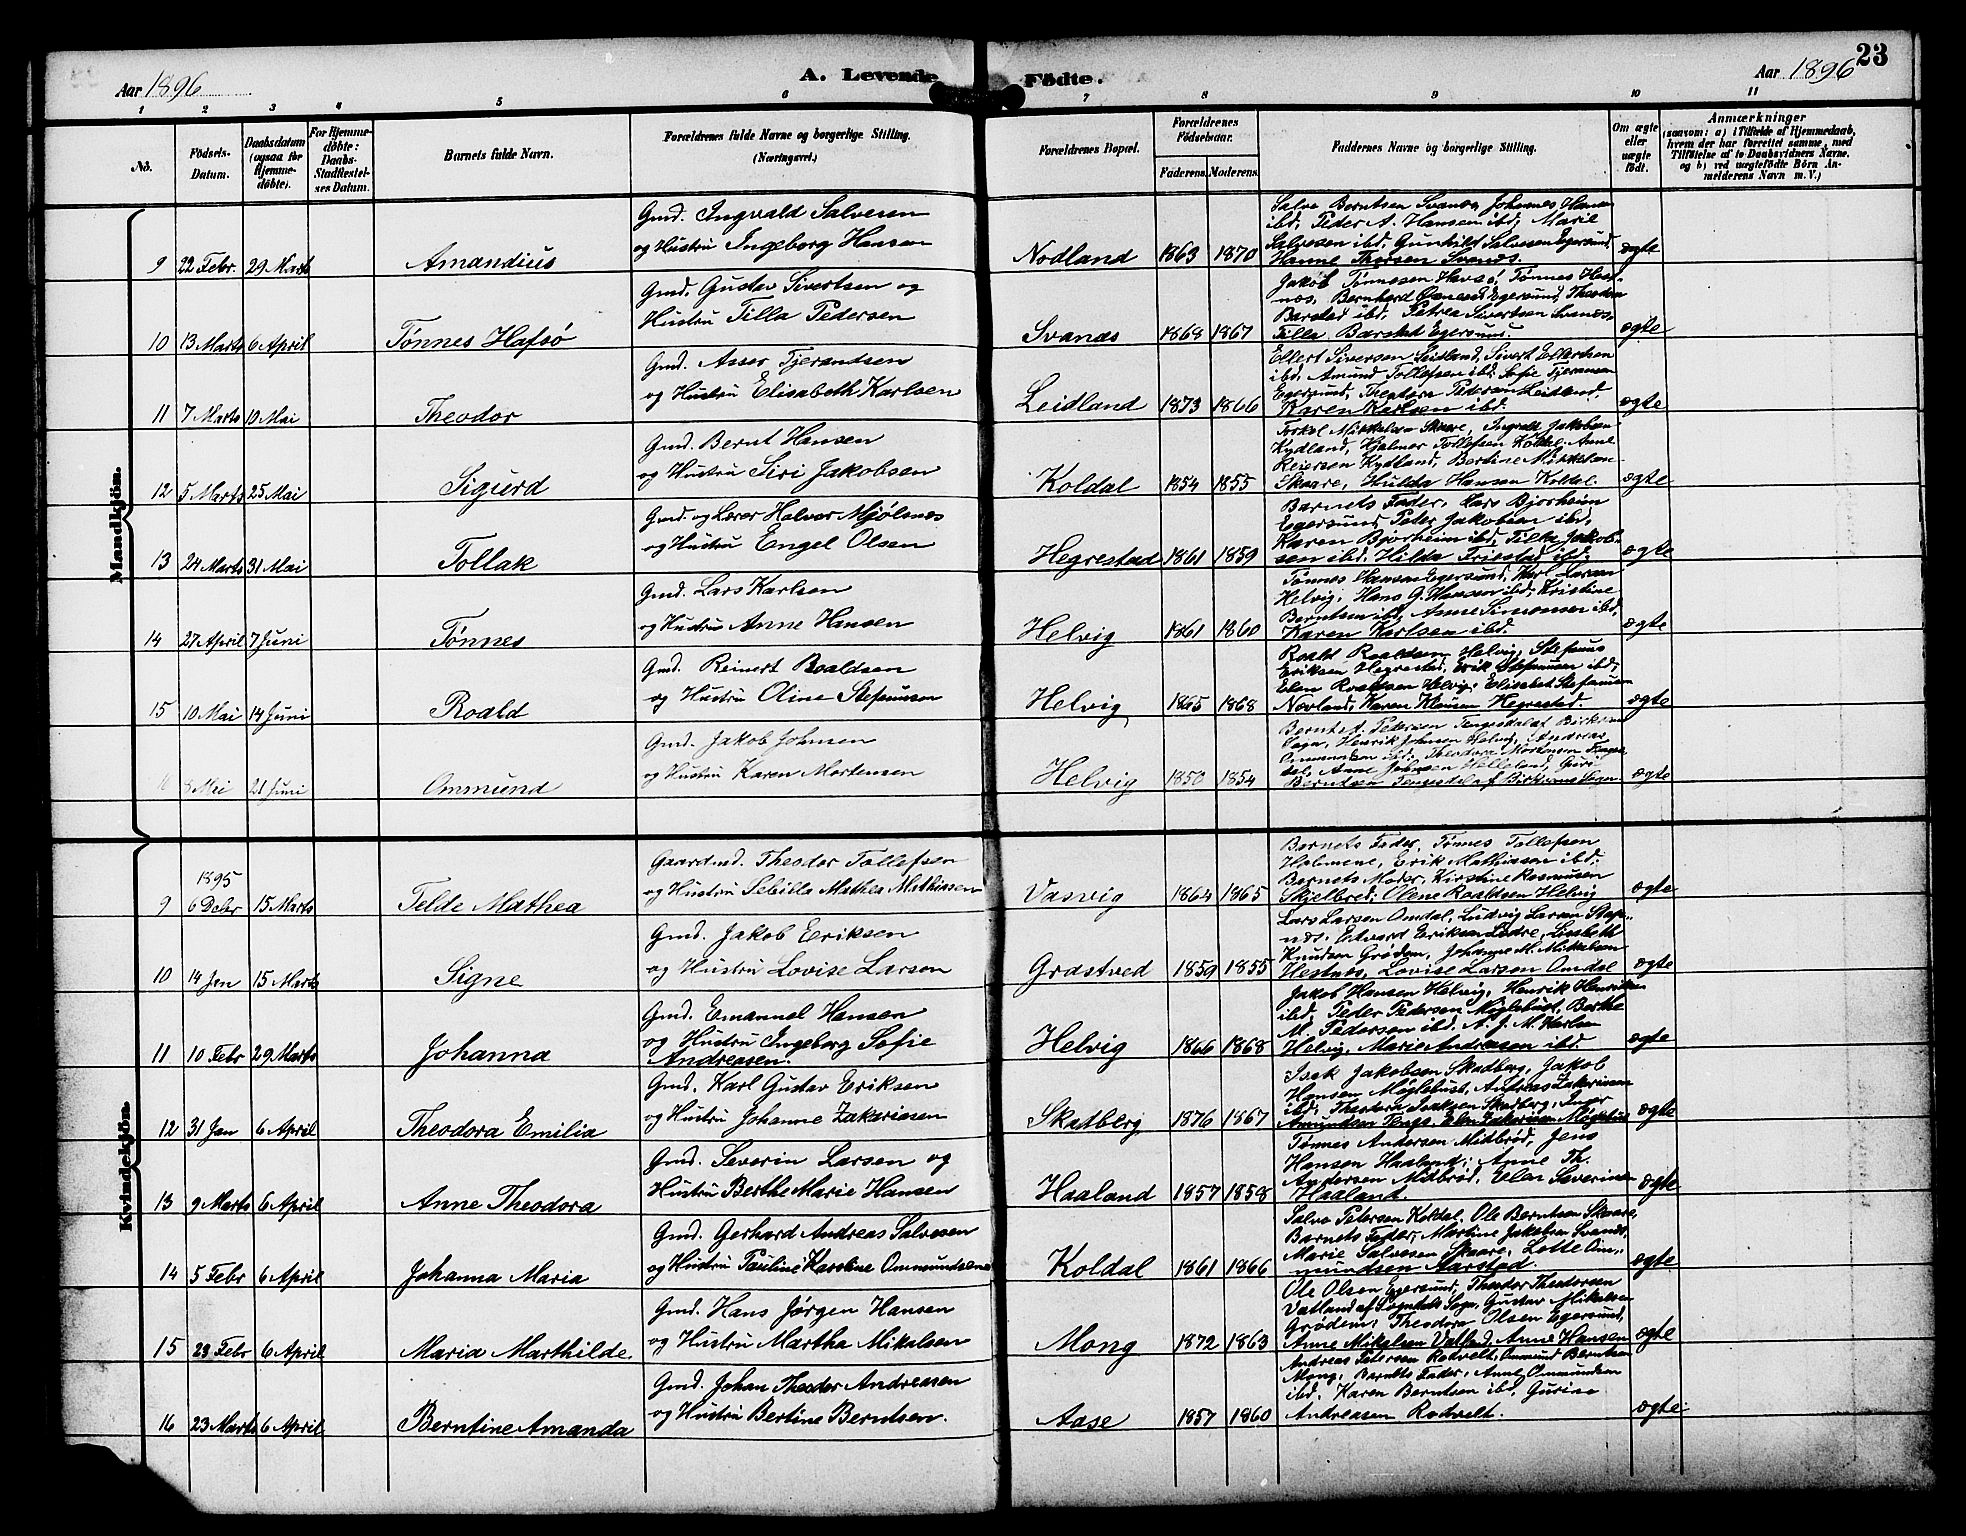 Aar 1896 A. Levende Födte. Aar 1896 23
1 2 3 4 5 6 7 8 9 10 11
No. Födsels-Datum. Daabsdatum (ogsaa for Hjemme-döbte). For Hjemme-döbte: Daabs-Stadfæstel-ses Datum. Barnets fulde Navn. Forældrenes fulde Navne og borgerlige Stilling. (Næringsvei.) Forældrenes Bopæl. Forældrenes Födselsaar. Faderens. Moderens. Faddernes Navne og borgerlige Stilling. Om ægte eller uægte födt. Anmærkninger
(saasom: a) i Tilfælde af Hjemmedaab, hvem der har forrettet samme, med Tilföielse af to Daabsvidners Navne, og b) ved uægtefödte Börn An-melderens Navn m. V.)
Mandkjön.
Gmd. Ingvald Salvesen
og Hustru Ingeborg Hansen
9 22 Febr. 29 Marts Amandius Nodland 1863 1870 ægte
Salve Berntsen Svanes, Johannes Hansen
ibd, Peder A. Hansen ibd, Marie
Salvesen ibd, Gunhild Salvesen Egersund,
Hanne Thorsen Svanes.
Gmd. Gustav Sivertsen og
Hustru Tilla Pedersen
10 13 Marts 6 April Tønnes Hafsø Svanæs 1868 1867 ægte
Jakob Tønnesen Havsø, Tønnes Hest-
næs, Bernhard Egersund, Theodor
Barstad ibd, Petrea Sivertsen Svanæs,
Tilla Barstad Egersund.
Gmd. Asser Tjerandsen
og Hustru Elisabeth Karlsen
11 7 Marts 10 Mai Theodor Leidland 1873 1866 ægte
Ellert Siversen Leidland, Sivert Ellertsen
ibd, Amund Tollefsen ibd, Sofie Tjeransen
Egersund, Theodora Pedersen Leidland,
Karen Karlsen ibd.
Gmd. Bernt Hansen
og Hustru Siri Jakobsen
12 5 Marts 25 Mai Sigurd Koldal 1854 1855 ægte
Torkel Mikkelsen Skaare, Ingvald Jakobsen
Kydland, Hjalmer Tollefsen Koldal, Anne
Reiersen Kydland, Bertine Mikkelsen
Skaare, Hulda Hansen Koldal.
Gmd. og Lærer Halvor Mjølsnes
og Hustru Engel Olsen
13 24 Marts 31 Mai Tollak Hegrestad 1861 1859 ægte
Barnets Fader, Lars Bjorheim
Egersund, Peter Jakobsen ibd,
Karen Bjorheim ibd, Tilla Jakob-
sen ibd, Hilda Friestad ibd.
Gmd. Lars Karlsen
og Hustru Anne Hansen
14 27 April 7 Juni Tønnes Helvig 1861 1860 ægte
Tønnes Hansen Egersund, Karl Larsen
Helvig, Hans G. Hansen ibd, Kristine
Berntsen ibd, Anne Simonsen ibd,
Karen Karlsen ibd.
Gmd. Reinert Roaldsen
og Hustru Oline Stefansen
15 10 Mai 14 Juni Roald Helvig 1865 1868 ægte
Roald Roaldsen Helvig, Stefanus
Eriksen Hegrestad, Erik Stefansen ibd,
Elen Roaldsen Helvig, Elisabet Stefansen
Novland, Karen Klausen Hegrestad.
Gmd. Jakob Johnsen
og Hustru Karen Mortensen
8 Mai 21 Juni Ommund Helvig 1850 1854 ægte
Bernt A. Petersen Tengesdal af Birkrem
Sogn, Henrik Johnsen Helvig, Andreas
Ommundsen ibd, Theodora Mortensen Tenges-
dal, Anne Johnsen Helleland, Guri
Berntsen Tengesdal af Birkrems Sogn
Kvindekjön.
Gaardmd. Theodor Tollefsen
og Hustru Sebilla Mathea Mathiasen
9 1895 6 Debr 15 Marts Telde Mathea Vasvig 1864 1865 ægte
Barnets Fader, Tønnes Tollefsen
Holmene, Erik Mathiasen ibd.
Barnets Moder, Kirstine Rasmusen
Skjelbred, Olene Roaldsen Helvig
Gmd. Jakob Eriksen
og Hustru Lovise Larsen
10 14 Jan 15 Marts Signe Grastved 1859 1855 ægte
Lars Larsen Omdal, Ludvig Larsen Stap-
næs, Edvard Eriksen Lædre, Lisabeth
Knudsen Grødem, Johanne M. Mikkelsen
Hestnæs, Lovise Larsen Omdal
Gmd. Emanuel Hansen
og Hustru Ingeborg Sofie
Andreasen.
11 10 Febr 29 Marts Johanna Helvig 1866 1868 ægte
Jakob Hansen Helvig, Henrik Henriksen
ibd, Peder Pedersen Møglebust, Berthe
M. Pedersen ibd. A. J. M. Karlsen
Helvig, Marie Andreasen ibd.
Gmd. Karl Gustav Eriksen
og Hustru Johanne Zakariasen
12 31 Jan 6 April Theodora Emilia Skadberg 1876 1867 ægte
Isak Jakobsen Skadberg, Jakob
Hansen Møglebust, Andreas Zakariasen
ibd, Theodora Isaksen Skadberg, Inger
Amundsen Tengs, Elen Zakariasen Møglebust
Gmd. Severin Larsen og
Hustru Berthe Marie Hansen
13 9 Marts 6 April Anne Theodora Haaland 1857 1858 ægte
Tønnes Andersen Midbrød, Jens
Hansen Haaland, Anne Th.
Andersen Midbrød, Elen Severine
Haaland.
Gmd. Gerhard Andreas Salvesen
og Hustru Pauline Karoline Ommundsen
14 5 Febr 6 April Johanna Maria Koldal 1861 1866 ægte
Salve Petersen Koldal, Ole Berntsen Skaare,
Barnets Fader, Martine Jakobsen Svanæs,
Marie Salvesen Skaare, Lotte Om-
mundsen Aarstad.
Gmd. Hans Jørgen Hansen
og Hustru Martha Mikalsen
15 23 Febr 6 April Maria Marthilde Mong 1872 1863 ægte
Ole Olsen Egersund, Theodor Theodorsen
Vatland af Sogndals Sogn, Gustav Mikalsen
Grødem, Theodora Olsen Egersund,
Anne Mikalsen Vatland, Anne Hansen
Gmd. Johan Theodor Andreasen
og Hustru Bertine Berntsen.
16 23 Marts 6 April Berntine Amanda Aase 1857 1860 ægte
Andreas Petersen Rodvelt, Ommund Berntsen
Mong, Barnets Fader, Anne Ommundsen
ibd, Karen Berntsen ibd, Gurine
Andreasen Rodvelt.